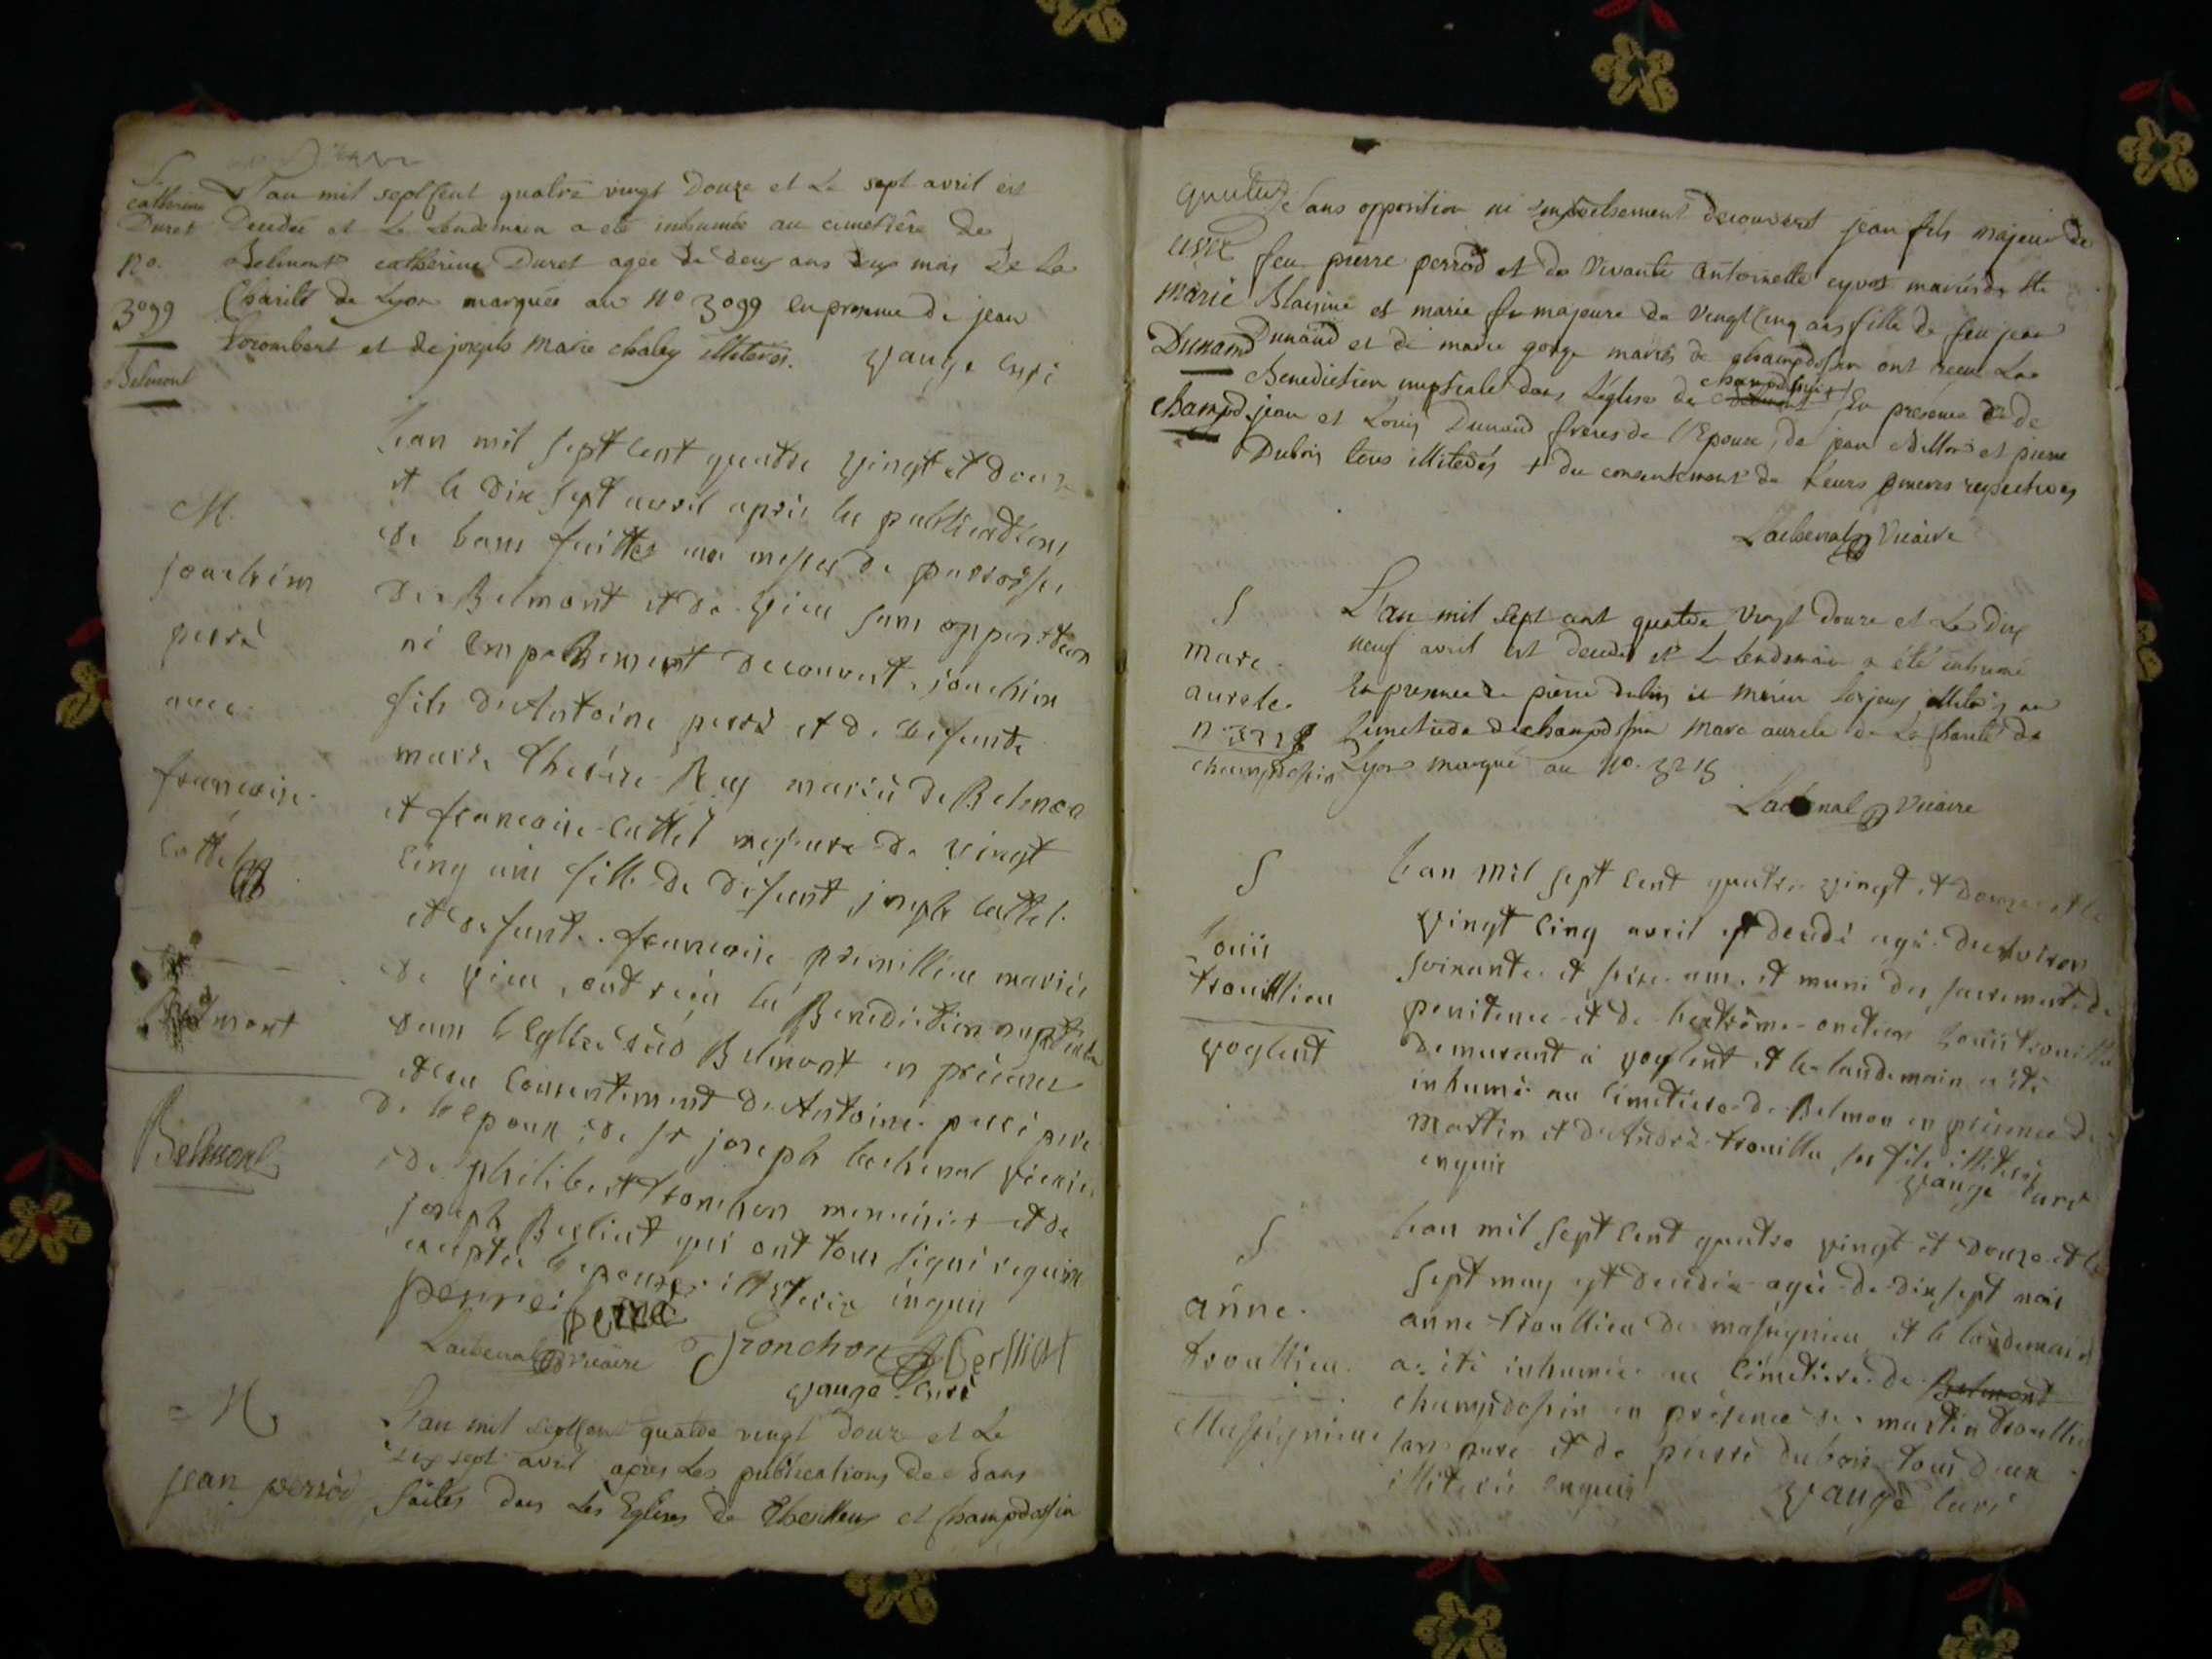 S
catherine
Duret
no.
3099
Belmont
L'an mil sept cent quatre vingt Douze et Le sept avril est
Decedée et Le Lendemain a eté inhumée au cimetiére de
Belmont catherine Duret agée de deux ans deux mois De La
Charité de Lyon marquée au No 3099 en presence de jean
et de joseph Marie chaley illiterés. vauge curé
M.
joachim
perré
avec
francoise
cattel
Belmont
Belmont
Lan mil sept cent quatre vingt et douze
et le dix sept avril aprés les publications
de bans faittes aux messes de parroisse
de Belmont et de vieu sans opposition
ni empechement decouvert, joachim
fils de Antoine perré et de defunte
marie therése Rey mariés de Belmon
et francoise cattel majeure de vingt
cinq ans fille de defunt joseph cattel
et defunte francoise premillieu mariés
de vieu, ont reçu la Benediction nuptiale
dans l'Eglise de Belmont en présence
et du consentement de Antoine perré pere
de l'epoux, de sr joseph Lachenal vicaire
de philibert tronchon menuisier et de
joseph Berliet qui ont tous signé requis
exceptée l'epouse illiterée enquis
perré perré
Lachenal vicaire Tronchon Berlliet
vauge curé
M
jean perrod
L'an mil sept cent quatre vingt douze et Le
dix sept avril apres Les publications de bans
faites dans Les Eglises de et champdossin
avec
marie
Dunand
champd.
Sans opposition ni empechement decouvert jean fils majeur de
feu pierre perrod et de vivante antoinette cyvot mariés de Ste
Blaisine et marie majeure de vingt cinq ans fille de feu jean
Dunand et de marie gorge mariés de champdossin ont recu La
Benediction nuptiale dans l'église de champdossin En presence de
jean et Louis Dunand freres de l'Epouse, de jean Billon et pierre
Dubois tous illiterés + du consentement de Leurs meres respectives
Lachenal Vicaire
S
marc
aurele
n. 3218
champdossin
L'an mil sept cent quatre vingt douze et Le dix
neuf avril est decedé et Le lendemain a été inhumé
En presence de pierre dubois et illiterés au
cimetiere de champdossin Marc aurele de La charité de
Lyon marqué au No. 3218
Lachenal Vicaire
S
Louis
trouillieu
voglent
Lan mil sept cent quatre vingt et Douze et le
vingt cinq avril est decedé agé de environ
soixante et seize ans et muni des sacrements de
penitence et de l'extrême-onction Louis trouilleu
demeurant à voglent et le landemain a été
inhumé au cimetiere de Belmon en présence de
Martin et de André trouilleu ses fils illiterés
enquis vauge curé
S
anne
troullieu
Massignieu
Lan mil sept cent quatre vingt et Douze et le
sept may est decedée agée de dix sept mois
anne troullieu de massignieu et le landemain
a été inhumée au cimetiere de Belmont
champdossin en présence de martin troullieu
son pere et de pierre dubois tous deux
illiterés enquis vauge curé